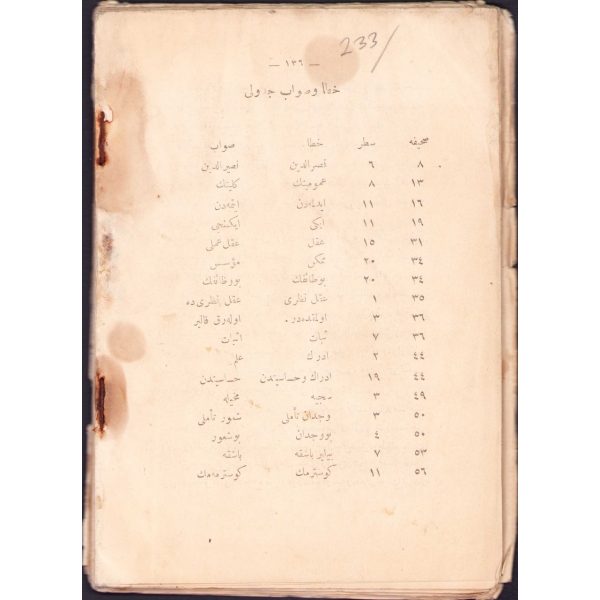 233/
— ١٣٦ —
خطا وصواب جدولی
صحیفه سطر خطا صواب
٨ ٦ نصرالدین نصیرالدین
١٣ ٨ عمومینك كلینك
١٦ ١١ ایدلمه‌دن ایتمه‌دن
١٩ ١١ ایكی ایكنجی
٣١ ١٥ عقل عقل عملی
٣٤ ٢٠ ممكن مؤسس
٣٤ ٢٠ بوطائفك بووظائفك
٣٥ ١ عقل نظری عقل نظری ده
٣٦ ٣ اولنده‌در. اوله‌رق قالیر
٣٦ ٧ ثبات اثبات
٤٤ ٢ ادرك علم
٤٤ ١٩ ادراك وحساسیندن حساسیندن
٤٩ ٣ سجیه مخیله
٥٠ ٣ وجدان تأملی شعور تأملی
٥٠ ٤ بووجدان بوشعور
٥٣ ٧ بیلیر باشقه باشقه
٥٦ ١١ كوسترمك كوسترمامك